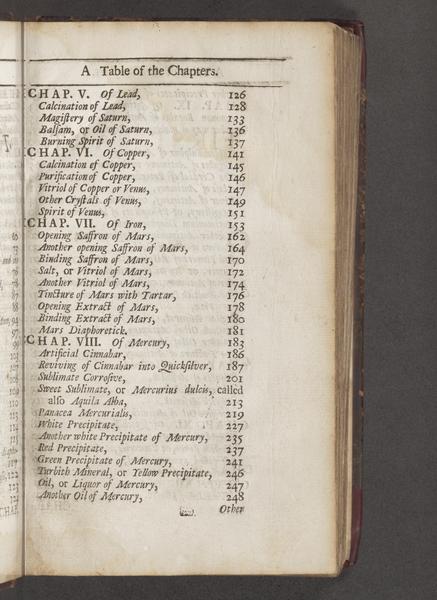 A Table of the Chapters.
CHAP. V. Of Lead, 126
Calcination of Lead, 128
Magiſtery of Saturn, 133
Balſam, or Oil of Saturn, 136
Burning Spirit of Saturn, 137
CHAP. VI. Of Copper, 141
Calcination of Copper, 145
Purification of Copper, 146
Vitriol of Copper or Venus, 147
Other Cryſtals of Venus, 149
Spirit of Venus, 151
CHAP. VII. Of Iron, 153
Opening Saffron of Mars, 162
Another opening Saffron of Mars, 164
Binding Saffron of Mars, 170
Salt, or Vitriol of Mars, 172
Another Vitriol of Mars, 174
Tincture of Mars with Tartar, 176
Opening Extract of Mars, 178
Binding Extract of Mars, 180
Mars Diaphoretick. 181
CHAP. VIII. Of Mercury, 183
Artificial Cinnabar, 186
Reviving of Cinnabar into Quickſilver, 187
Sublimate Corroſive, 201
Sweet Sublimate, or Mercurius dulcis, called
alſo Aquila Alba, 213
Panacea Mercurialis, 219
White Precipitate, 227
Another white Precipitate of Mercury, 235
Red Precipitate, 237
Green Precipitate of Mercury, 241
Turbith Mineral, or Yellow Precipitate, 246
Oil, or Liquor of Mercury, 247
Another Oil of Mercury, 248
Other